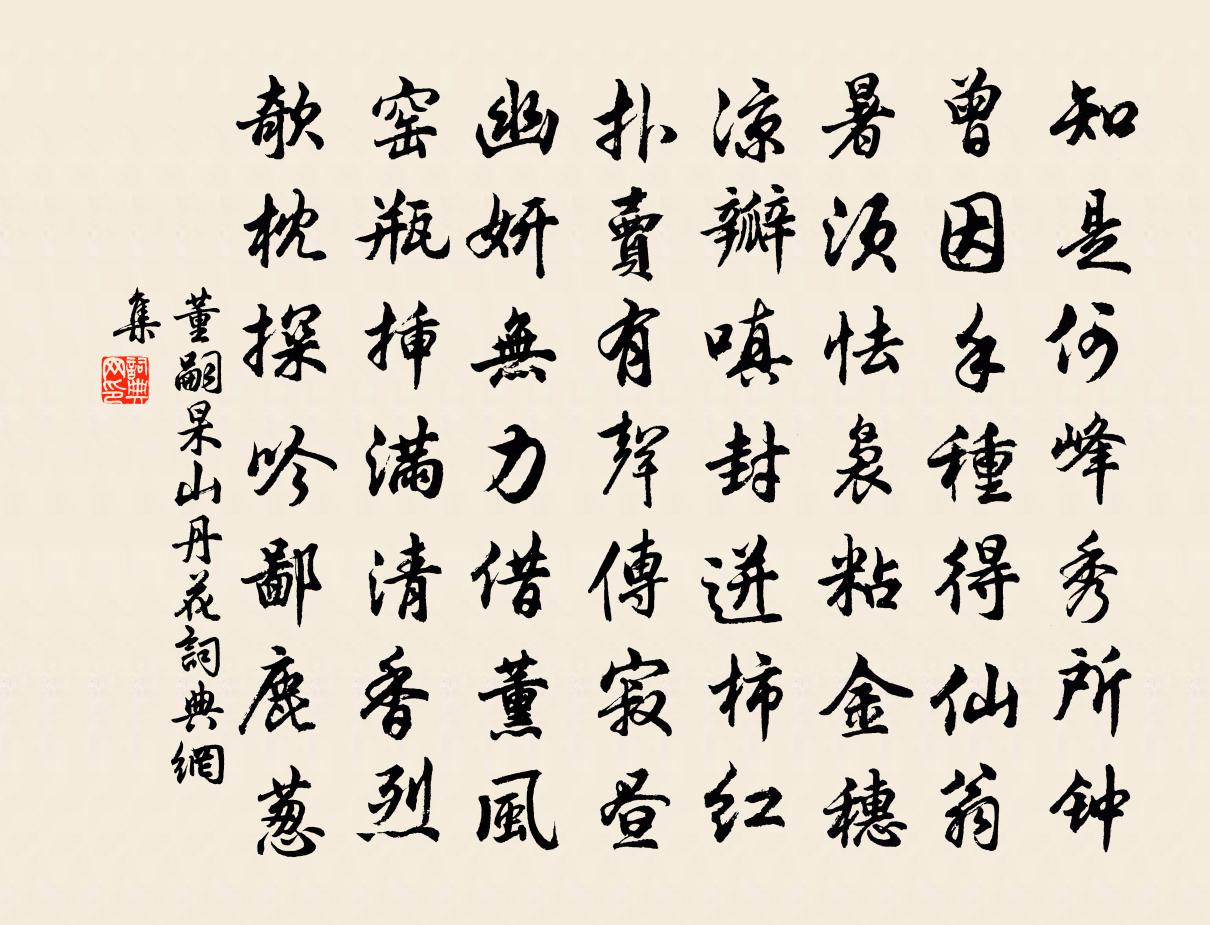 知是何峰秀所钟
曾因手種得仙翁
暑须怯裊粘金穗
涼瓣嗔封迸柿红
扑賣有聲傳寂昼
幽妍無力借薰風
窑瓶挿滿清香烈
欹枕探吟鄙鹿葱
董嗣杲山丹花詞典網
集
詞典网印